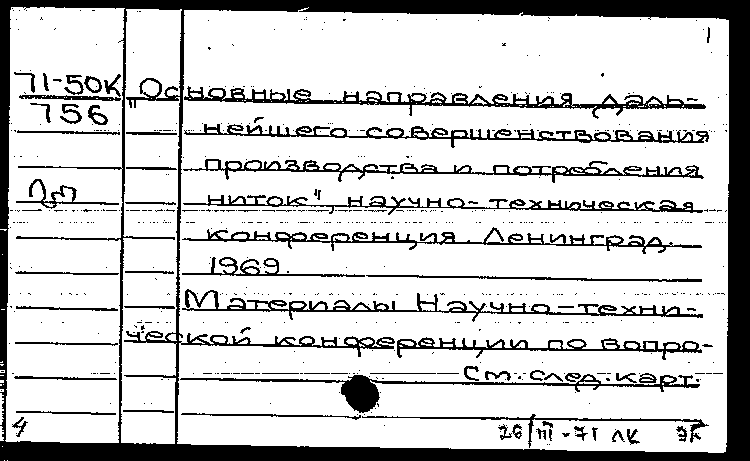 1
71-50К
756
"Основные направления даль-
нейшего совершенствования
производства и потребления
ниток", научно-техническая
конференция. Ленинград.
1969.
Материалы Научно-техни-
ческой конференции по вопро-
См. след. карт.
4
26/III-71 ЛК